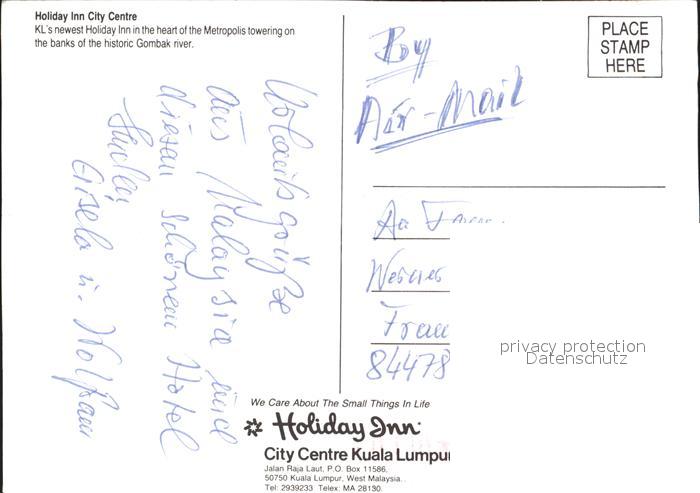 Holiday Inn City Centre
KL's newest Holiday Inn in the heart of the Metropolis towering on
the banks of the historic Gombak river.
PLACE
STAMP
HERE
By
Air-Mail
Urlaubsgrüße
aus Malaysia und
diesem schönen Hotel
senden
Gisela u. Wolfram
An
Werner
84478
privacy protection
Datenschutz
We Care About The Small Things In Life
Holiday Inn
City Centre Kuala Lumpu
Jalan Raja Laut, P.O. Box 11586,
50750 Kuala Lumpur, West Malaysia.
Tel: 2939233 Telex: MA 28130.